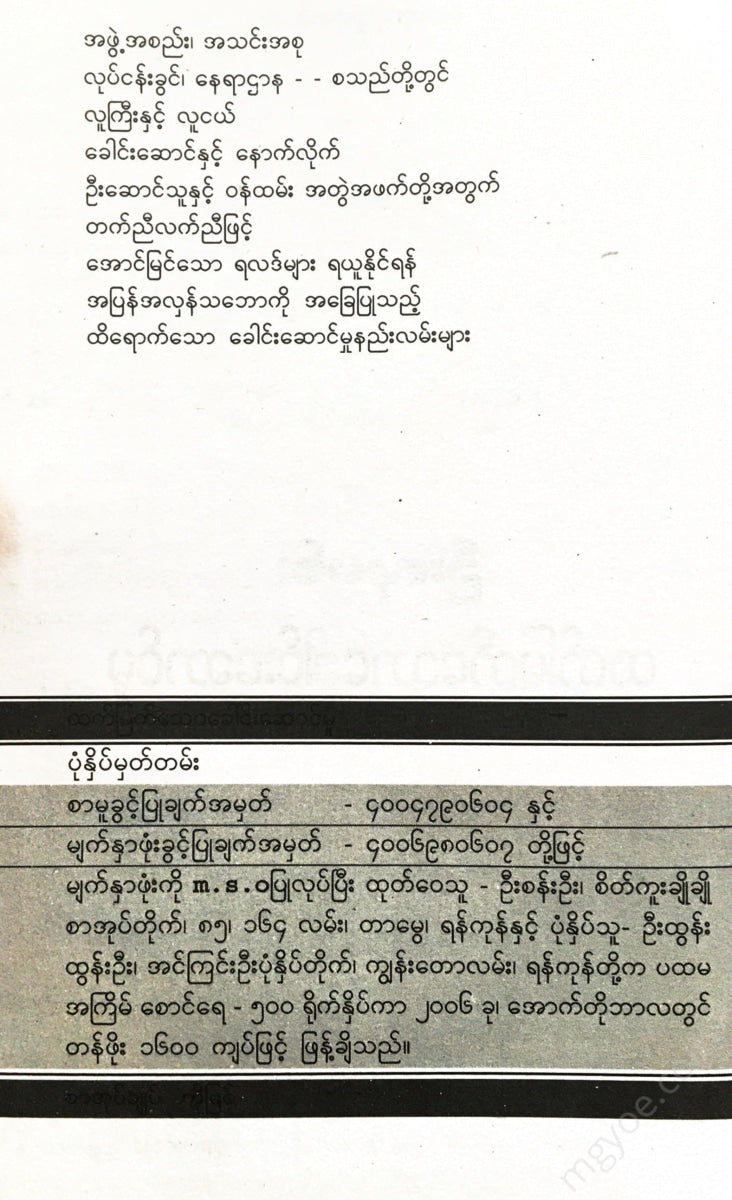 အဖွဲ့အစည်း၊ အသင်းအစု
လုပ်ငန်းခွင်၊ နေရာဌာန - - စသည်တို့တွင်
လူကြီးနှင့် လူငယ်
ခေါင်းဆောင်နှင့် နောက်လိုက်
ဦးဆောင်သူနှင့် ဝန်ထမ်း အတွဲအဖက်တို့အတွက်
တက်ညီလက်ညီဖြင့်
အောင်မြင်သော ရလဒ်များ ရယူနိုင်ရန်
အပြန်အလှန်သဘောကို အခြေပြုသည့်
ထိရောက်သော ခေါင်းဆောင်မှုနည်းလမ်းများ
ပုံနှိပ်မှတ်တမ်း
စာမူခွင့်ပြုချက်အမှတ် - ၄၀၀၄၇၉၀၆၀၄ နှင့်
မျက်နှာဖုံးခွင့်ပြုချက်အမှတ် - ၄၀၀၆၉၈၀၆၀၇ တို့ဖြင့်
မျက်နှာဖုံးကို m.s.oပြုလုပ်ပြီး ထုတ်ဝေသူ - ဦးစန်းဦး၊ စိတ်ကူးချိုချို
စာအုပ်တိုက်၊ ၈၅၊ ၁၆၄ လမ်း၊ တာမွေ၊ ရန်ကုန်နှင့် ပုံနှိပ်သူ- ဦးထွန်း
ထွန်းဦး၊ အင်ကြင်းဦးပုံနှိပ်တိုက်၊ ကျွန်းတောလမ်း၊ ရန်ကုန်တို့က ပထမ
အကြိမ် စောင်ရေ - ၅၀၀ ရိုက်နှိပ်ကာ ၂၀၀၆ ခု၊ အောက်တိုဘာလတွင်
တန်ဖိုး ၁၆၀၀ ကျပ်ဖြင့် ဖြန့်ချိသည်။